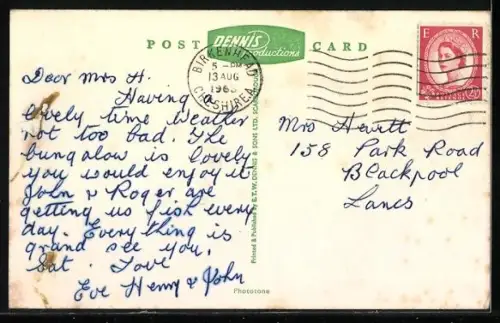 POST DENNIS Productions CARD
BIRKENHEAD
5 - PM
13 AUG
196
CHESHIRE A
E R
Dear Mrs H.
Having
lovely time weather
not too bad. The
bungalow is lovely
you would enjoy it
John & Roger are
getting us fish every
day. Everything is
grand see you,
Sat. Love
Eve Henry & John
Printed & Published by E.T.W. DENNIS & SONS LTD., SCARBOROUGH
Mrs Hewitt
158 Park Road
Blackpool
Lancs
Phototone